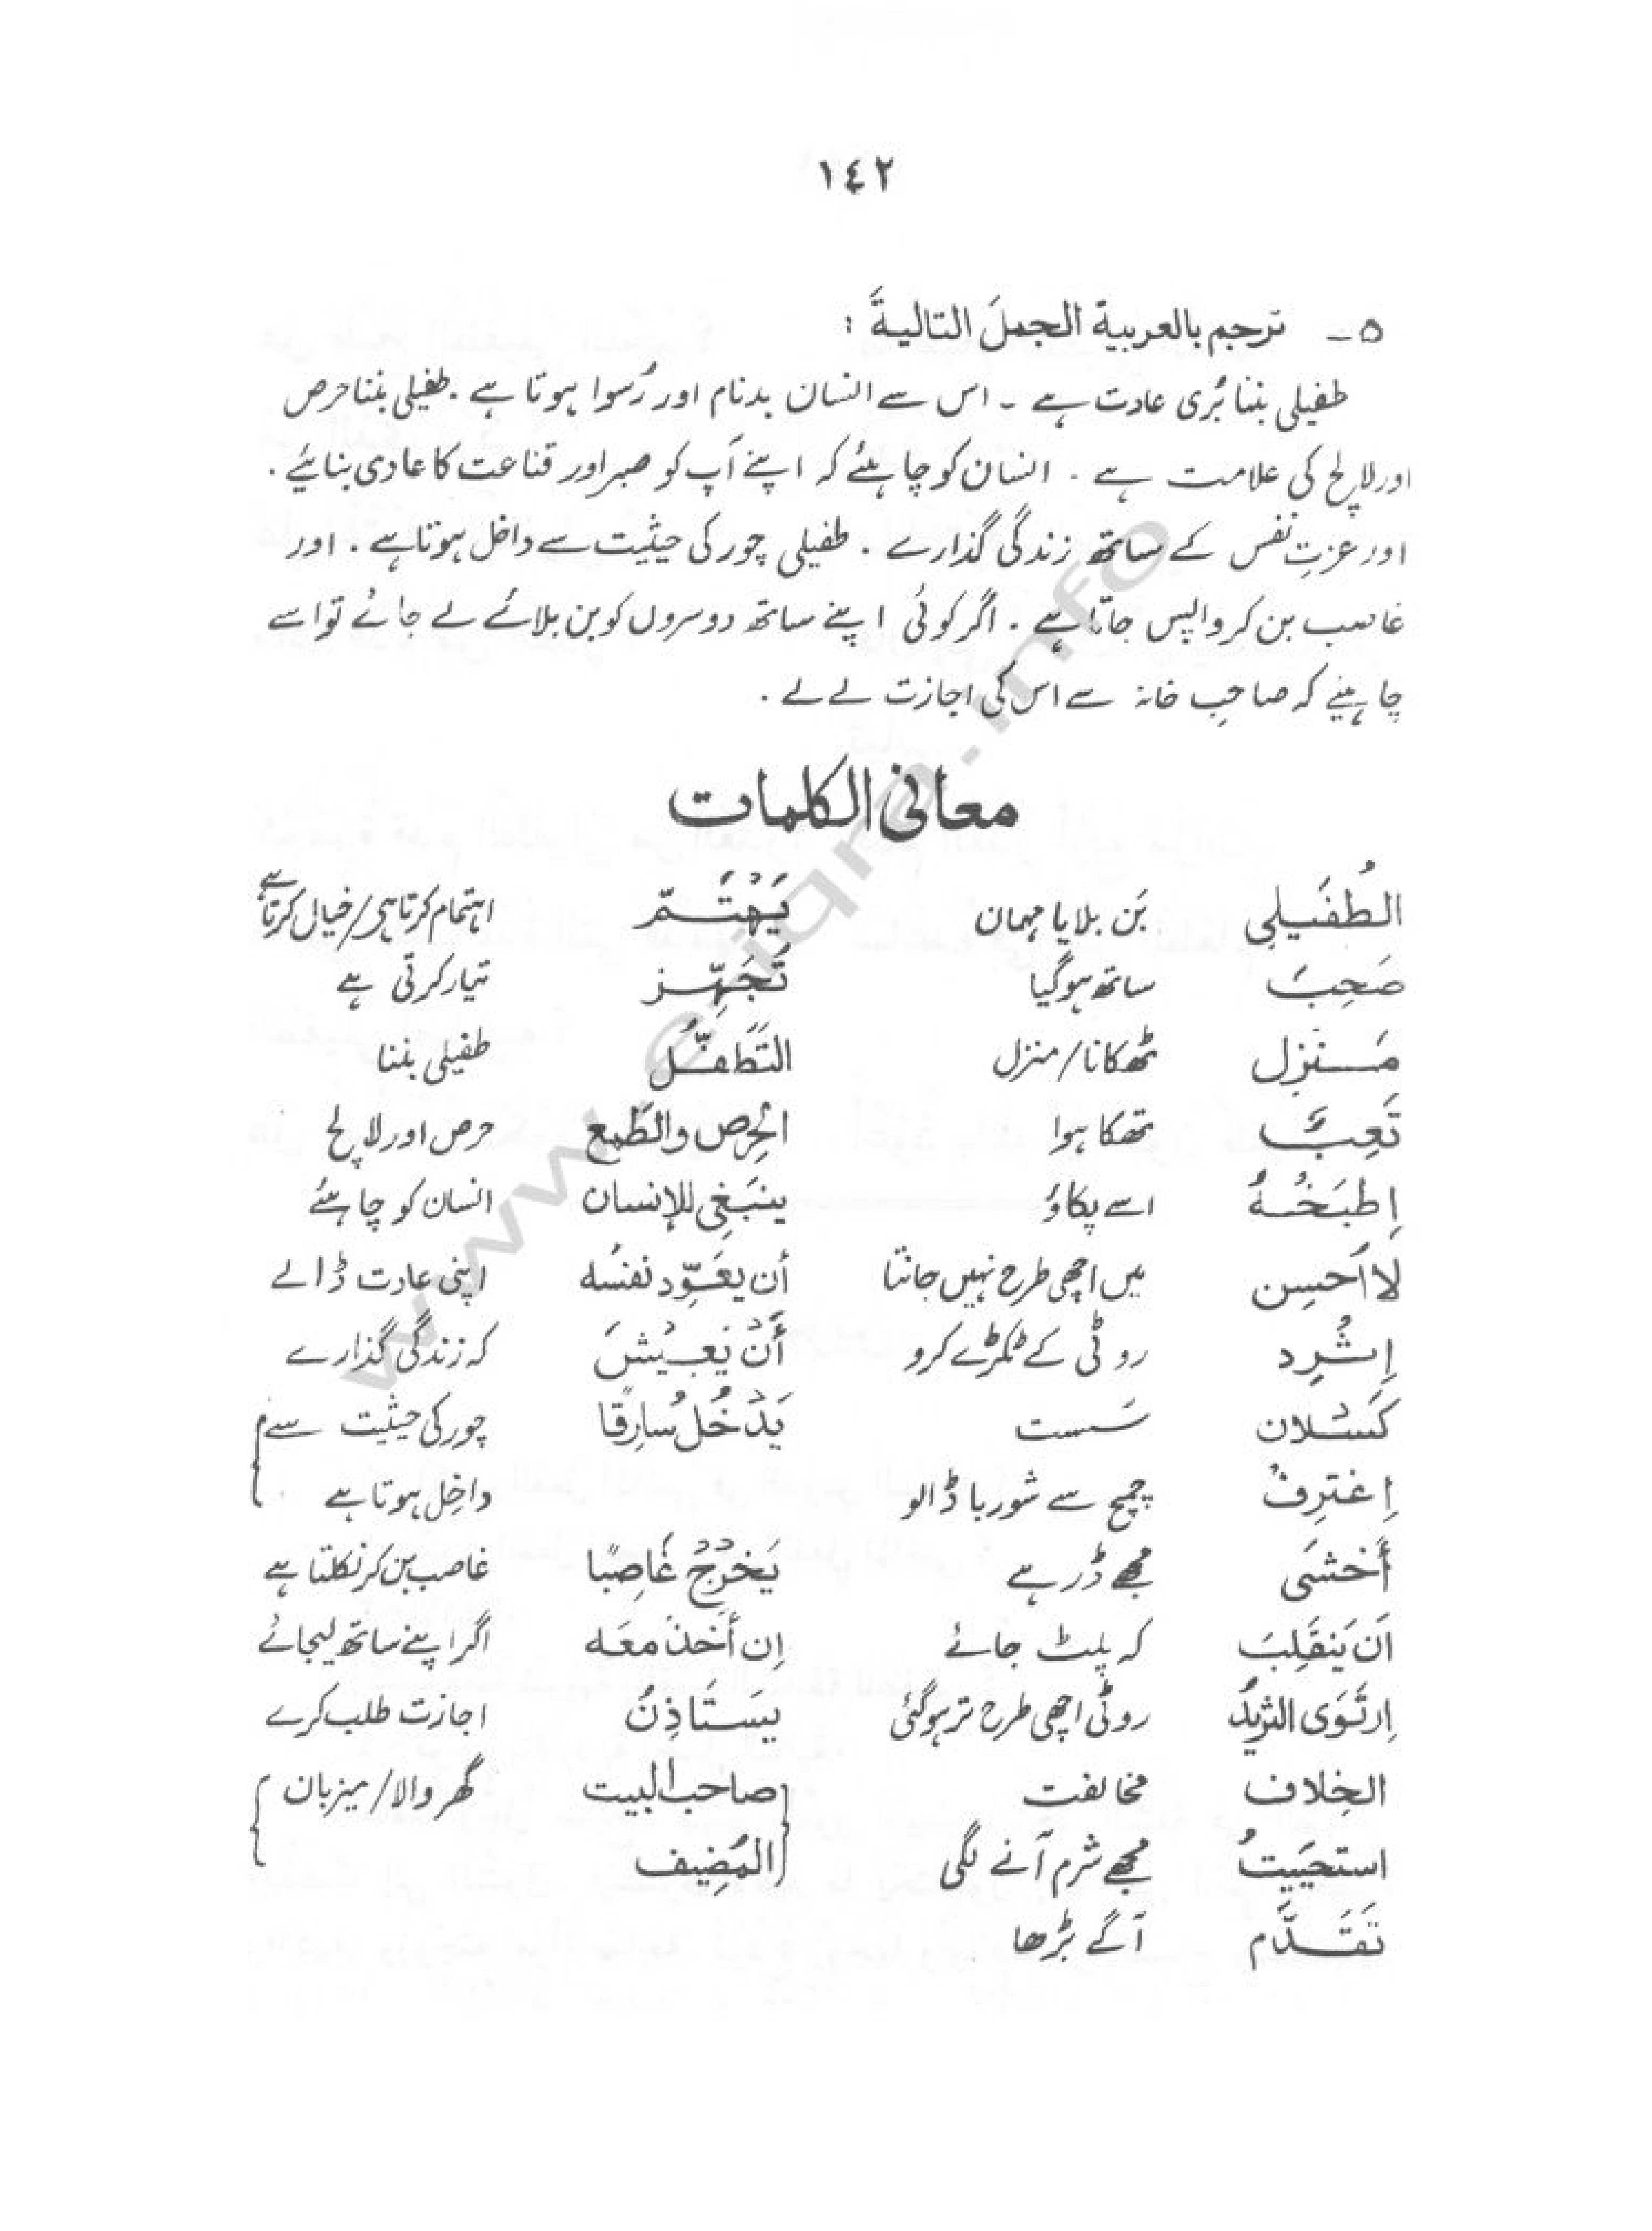 ١٤٢
٥ـ ترجم بالعربية الجملَ التاليةَ :
طفیلی بننا بُری عادت ہے ۔ اس سے انسان بدنام اور رُسوا ہوتا ہے ۔ طفیلی بننا حرص
اور لالچ کی علامت ہے ۔ انسان کو چاہئے کہ اپنے آپ کو صبر اور قناعت کا عادی بنایئے ۔
اور عزتِ نفس کے ساتھ زندگی گذارے ۔ طفیلی چور کی حیثیت سے داخل ہوتا ہے ۔ اور
غاصب بن کر واپس جاتا ہے ۔ اگر کوئی اپنے ساتھ دوسروں کو بن بلائے لے جائے تو اسے
چاہیئے کہ صاحبِ خانہ سے اس کی اجازت لے لے ۔
معانی الکلمات
الطُفَیلی بَن بلایا مہمان يَهْتَمّ اہتمام کرتا ہی/خیال کرتا ہے
صَحِبَ ساتھ ہوگیا تُجَهِّز تیار کرتی ہے
مَنزِل ٹھکانا/منزل التَطَفُّل طفیلی بننا
تَعِبٌ تھکا ہوا الحِرص والطَمع حرص اور لالچ
اِطبَخْهُ اسے پکاؤ ينبَغِي للإنسان انسان کو چاہئے
لا اُحسِن میں اچھی طرح نہیں جانتا أن يعَوِّد نفسَه اپنی عادت ڈالے
اِثْرِد روٹی کے ٹکڑے کرو أَنْ يَعِيْشَ کہ زندگی گذارے
كَسْلان سَست يَدْخُلُ سارِقًا چور کی حیثیت سے
اِغترِفْ چمچ سے شوربا ڈالو داخِل ہوتا ہے
أَخشَى مجھے ڈر ہے يَخرُجُ غَاصِبًا غاصب بن کر نکلتا ہے
اَن يَنقَلِبَ کہ پلٹ جائے اِن أَخذَ معَه اگر اپنے ساتھ لیجائے
اِرتَوَى الثريدُ روٹی اچھی طرح تر ہوگئی يستَاذِنُ اجازت طلب کرے
الخِلاف مخالفت صاحب البيت گھر والا/میزبان
استحيَيتُ مجھے شرم آنے لگی المُضِيف
تقَدَّم آگے بڑھا
www.eiqra.info